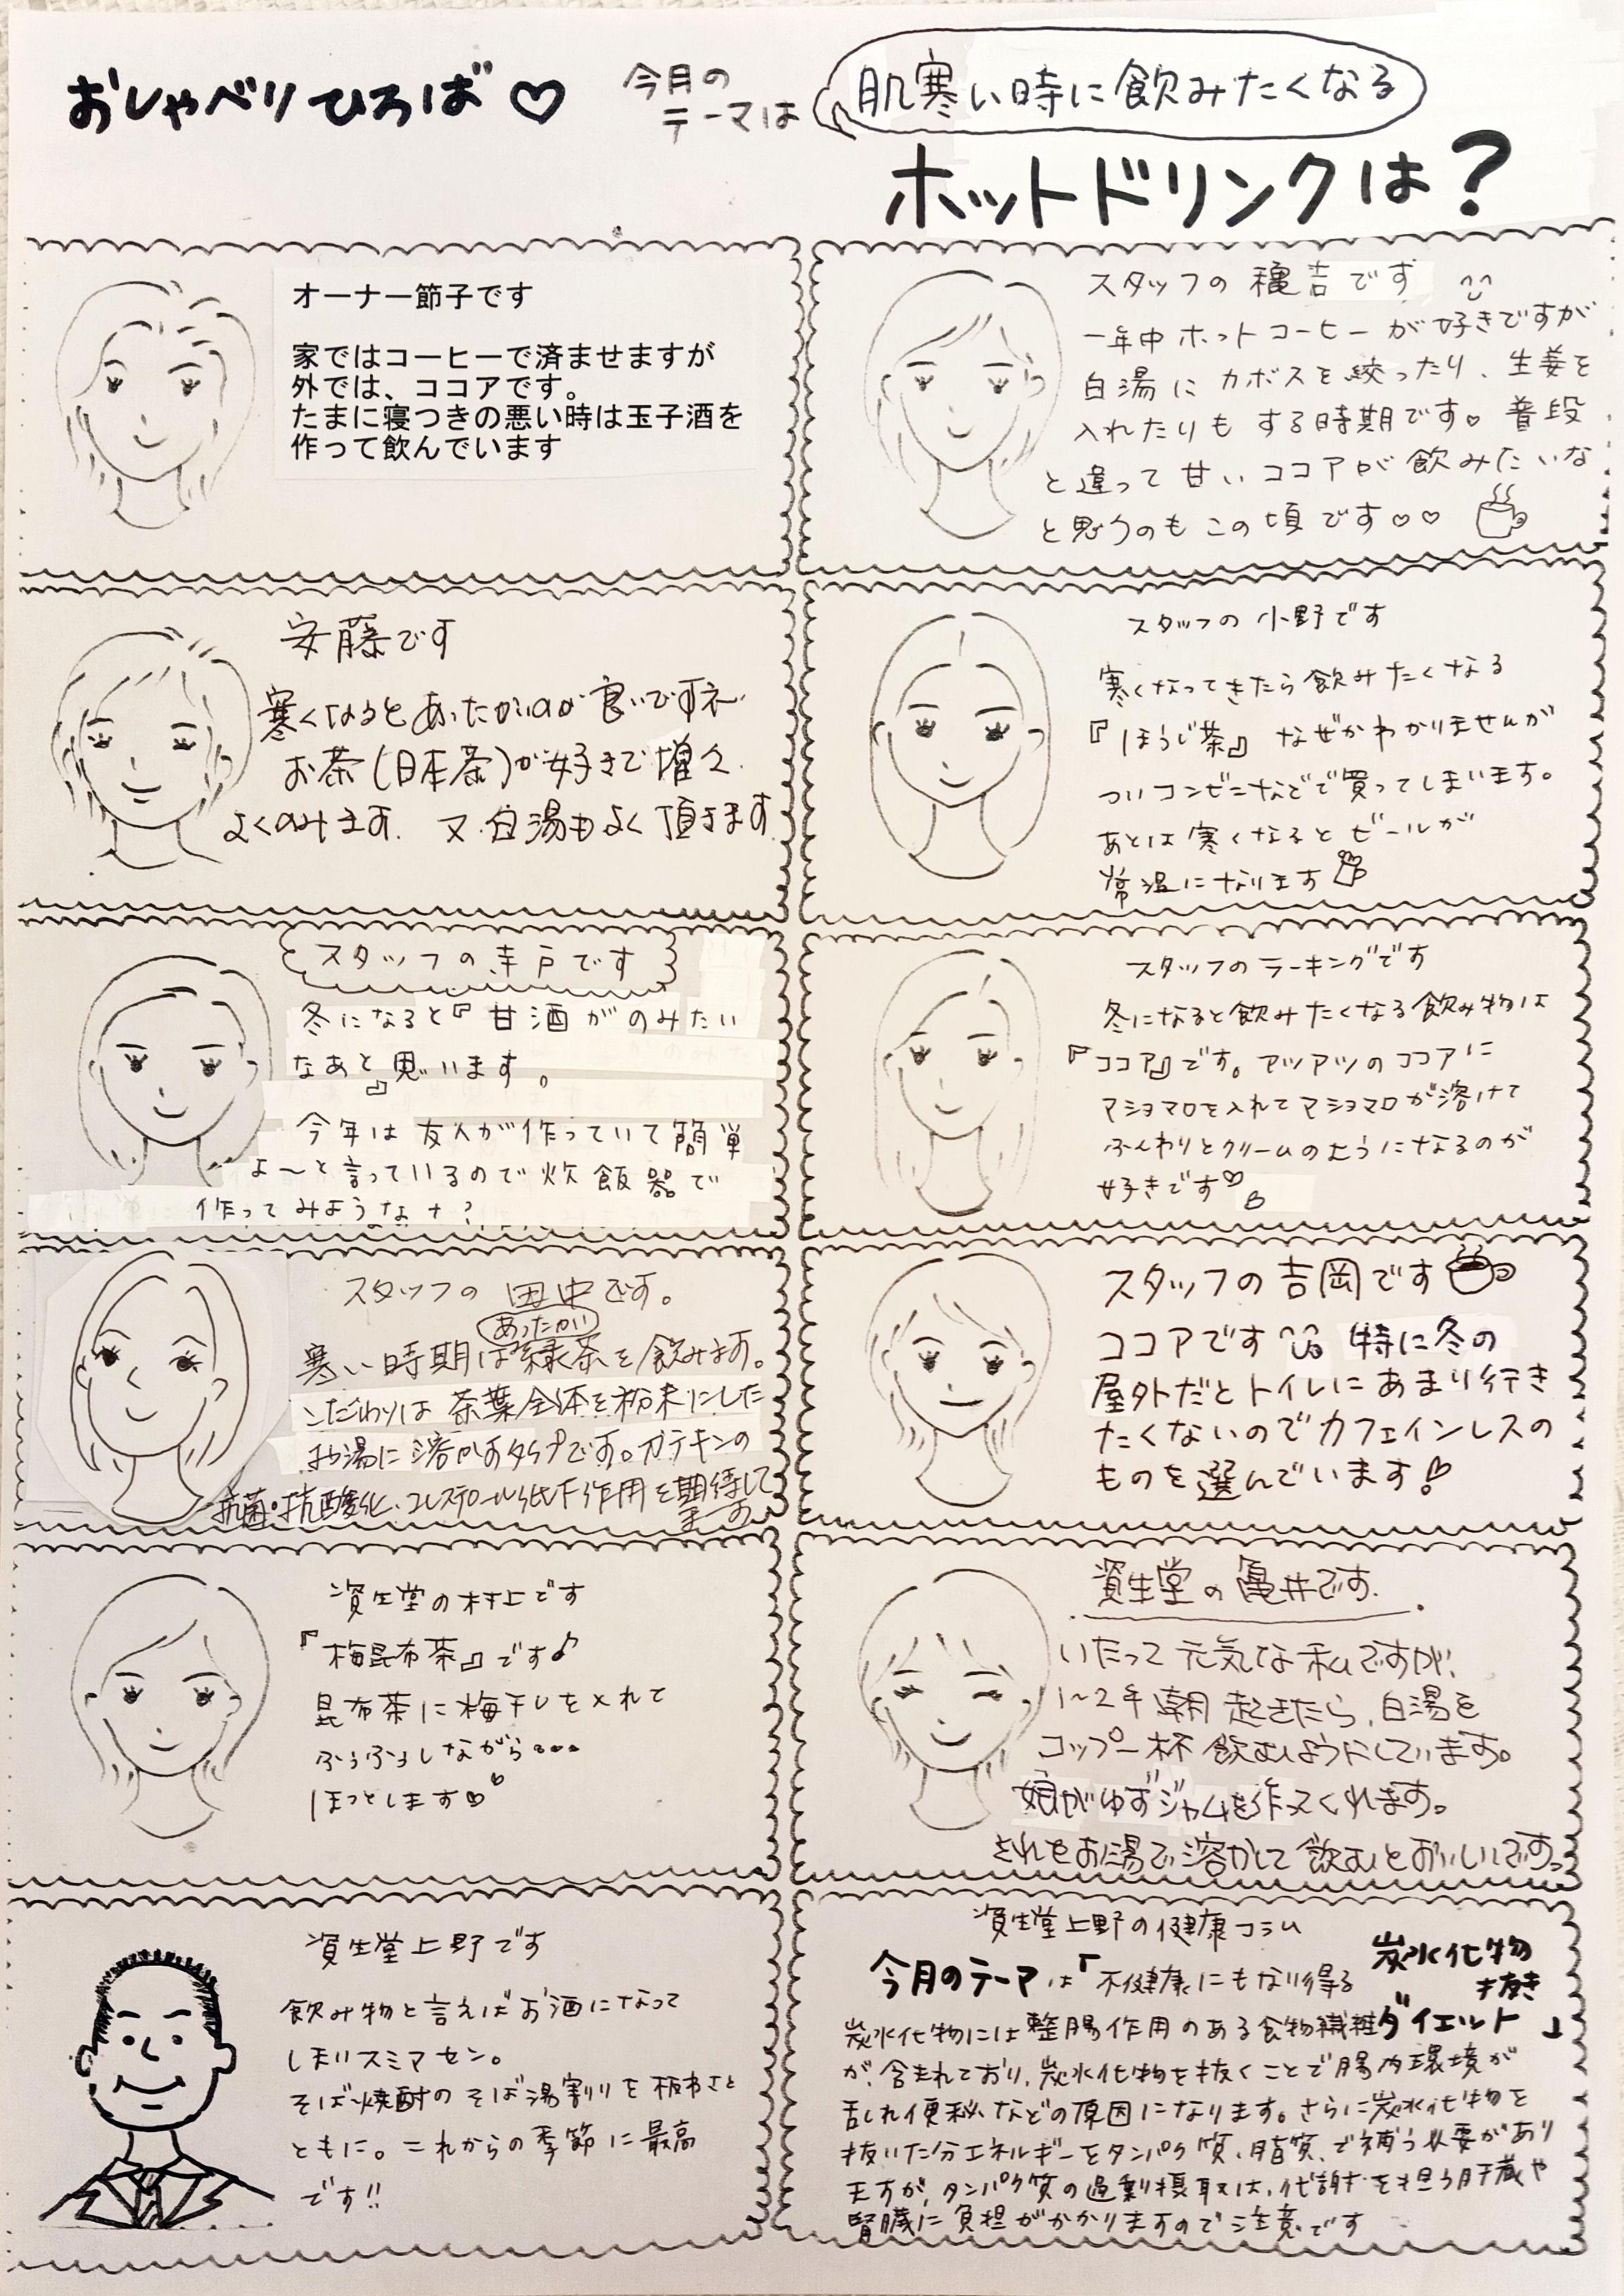 おしゃべりひろば♡
今月の
テーマは
肌寒い時に飲みたくなる
ホットドリンクは？
オーナー節子です
家ではコーヒーで済ませますが
外では、ココアです。
たまに寝つきの悪い時は玉子酒を
作って飲んでいます
スタッフの 穐吉です
一年中ホットコーヒーが好きですが
白湯にカボスを絞ったり、生姜を
入れたりもする時期です♡普段
と違って甘いココアが飲みたいな
と思うのもこの頃です♡♡
安藤です
寒くなるとあったかいのが良いですネ
お茶(日本茶)が好きで増々
よくのみます。又、白湯もよく頂きます
スタッフの 小野です
寒くなってきたら飲みたくなる
『ほうじ茶』なぜかわかりませんが
ついコンビニなどで買ってしまいます。
あとは寒くなるとビールが
常温になります
スタッフの幸戸です
冬になると『甘酒がのみたい
なあと』思います。
今年は友人が作っていて簡単
よ〜と言っているので炊飯器で
作ってみようかな＋？
スタッフのラーキングです
冬になると飲みたくなる飲み物は
『ココア』です。アツアツのココアに
マショマロを入れてマショマロが溶けて
ふんわりとクリームのようになるのが
好きです♡
スタッフの 田中です。
あったかい
寒い時期は緑茶を飲みます。
こだわりは茶葉全体を粉末にした
お湯に溶かすタイプです。カテキンの
抗菌・抗酸化、コレステロール低下作用を期待して
ます。
スタッフの吉岡です
ココアです 特に冬の
屋外だとトイレにあまり行き
たくないのでカフェインレスの
ものを選んでいます！
資生堂の村上です
『梅昆布茶』です♪
昆布茶に梅干しを入れて
ふぅふぅしながら…
ほっとします♡
資生堂の亀井です。
いたって元気な私ですが、
1〜2年朝起きたら、白湯を
コップ一杯飲むようにしています。
娘がゆずジャムを作ってくれます。
それをお湯で溶かして飲むとおいしいです。
資生堂上野です
飲み物と言えばお酒になって
しまいスミマセン。
そば焼酎のそば湯割りを板わさと
ともに。これからの季節に最高
です!!
資生堂上野の健康コラム
今月のテーマは「不健康にもなり得る 炭水化物
抜き
ダイエット」
炭水化物には整腸作用のある食物繊維
が、含まれており、炭水化物を抜くことで腸内環境が
乱れ便秘などの原因になります。さらに炭水化物を
抜いた分エネルギーをタンパク質、脂質、で補う必要があり
ますが、タンパク質の過剰摂取は、代謝を担う肝臓や
腎臓に負担がかかりますのでご注意です